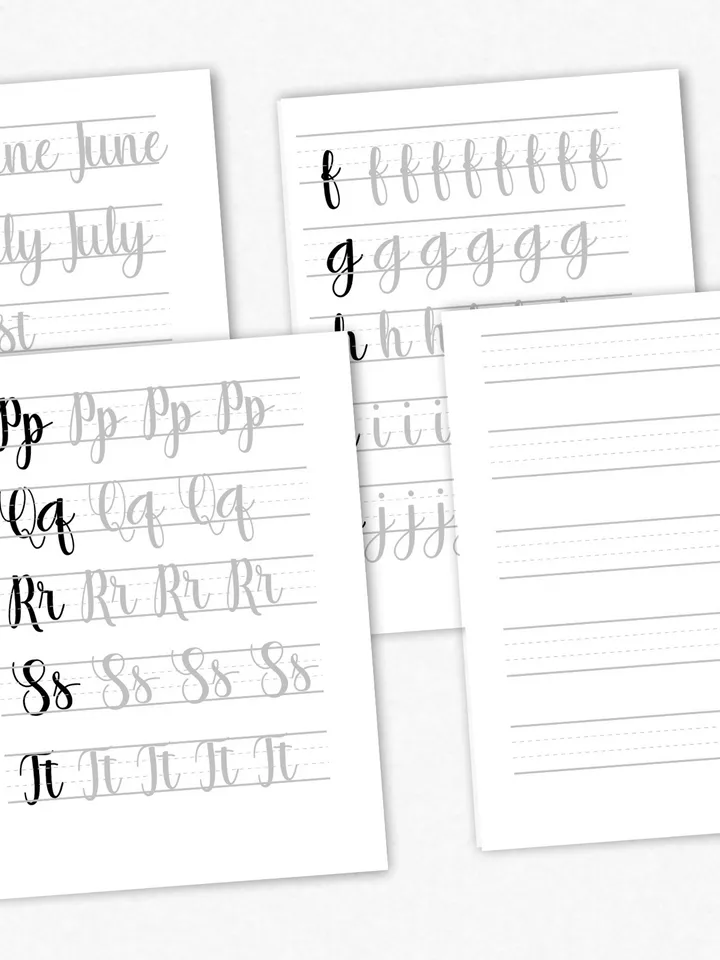 June
July
f f f f f f f f f
g g g g g g
h h h
i i i
j j j
Pp Pp Pp Pp
Qq Qq Qq
Rr Rr Rr Rr
Ss Ss Ss Ss
Tt Tt Tt Tt Tt